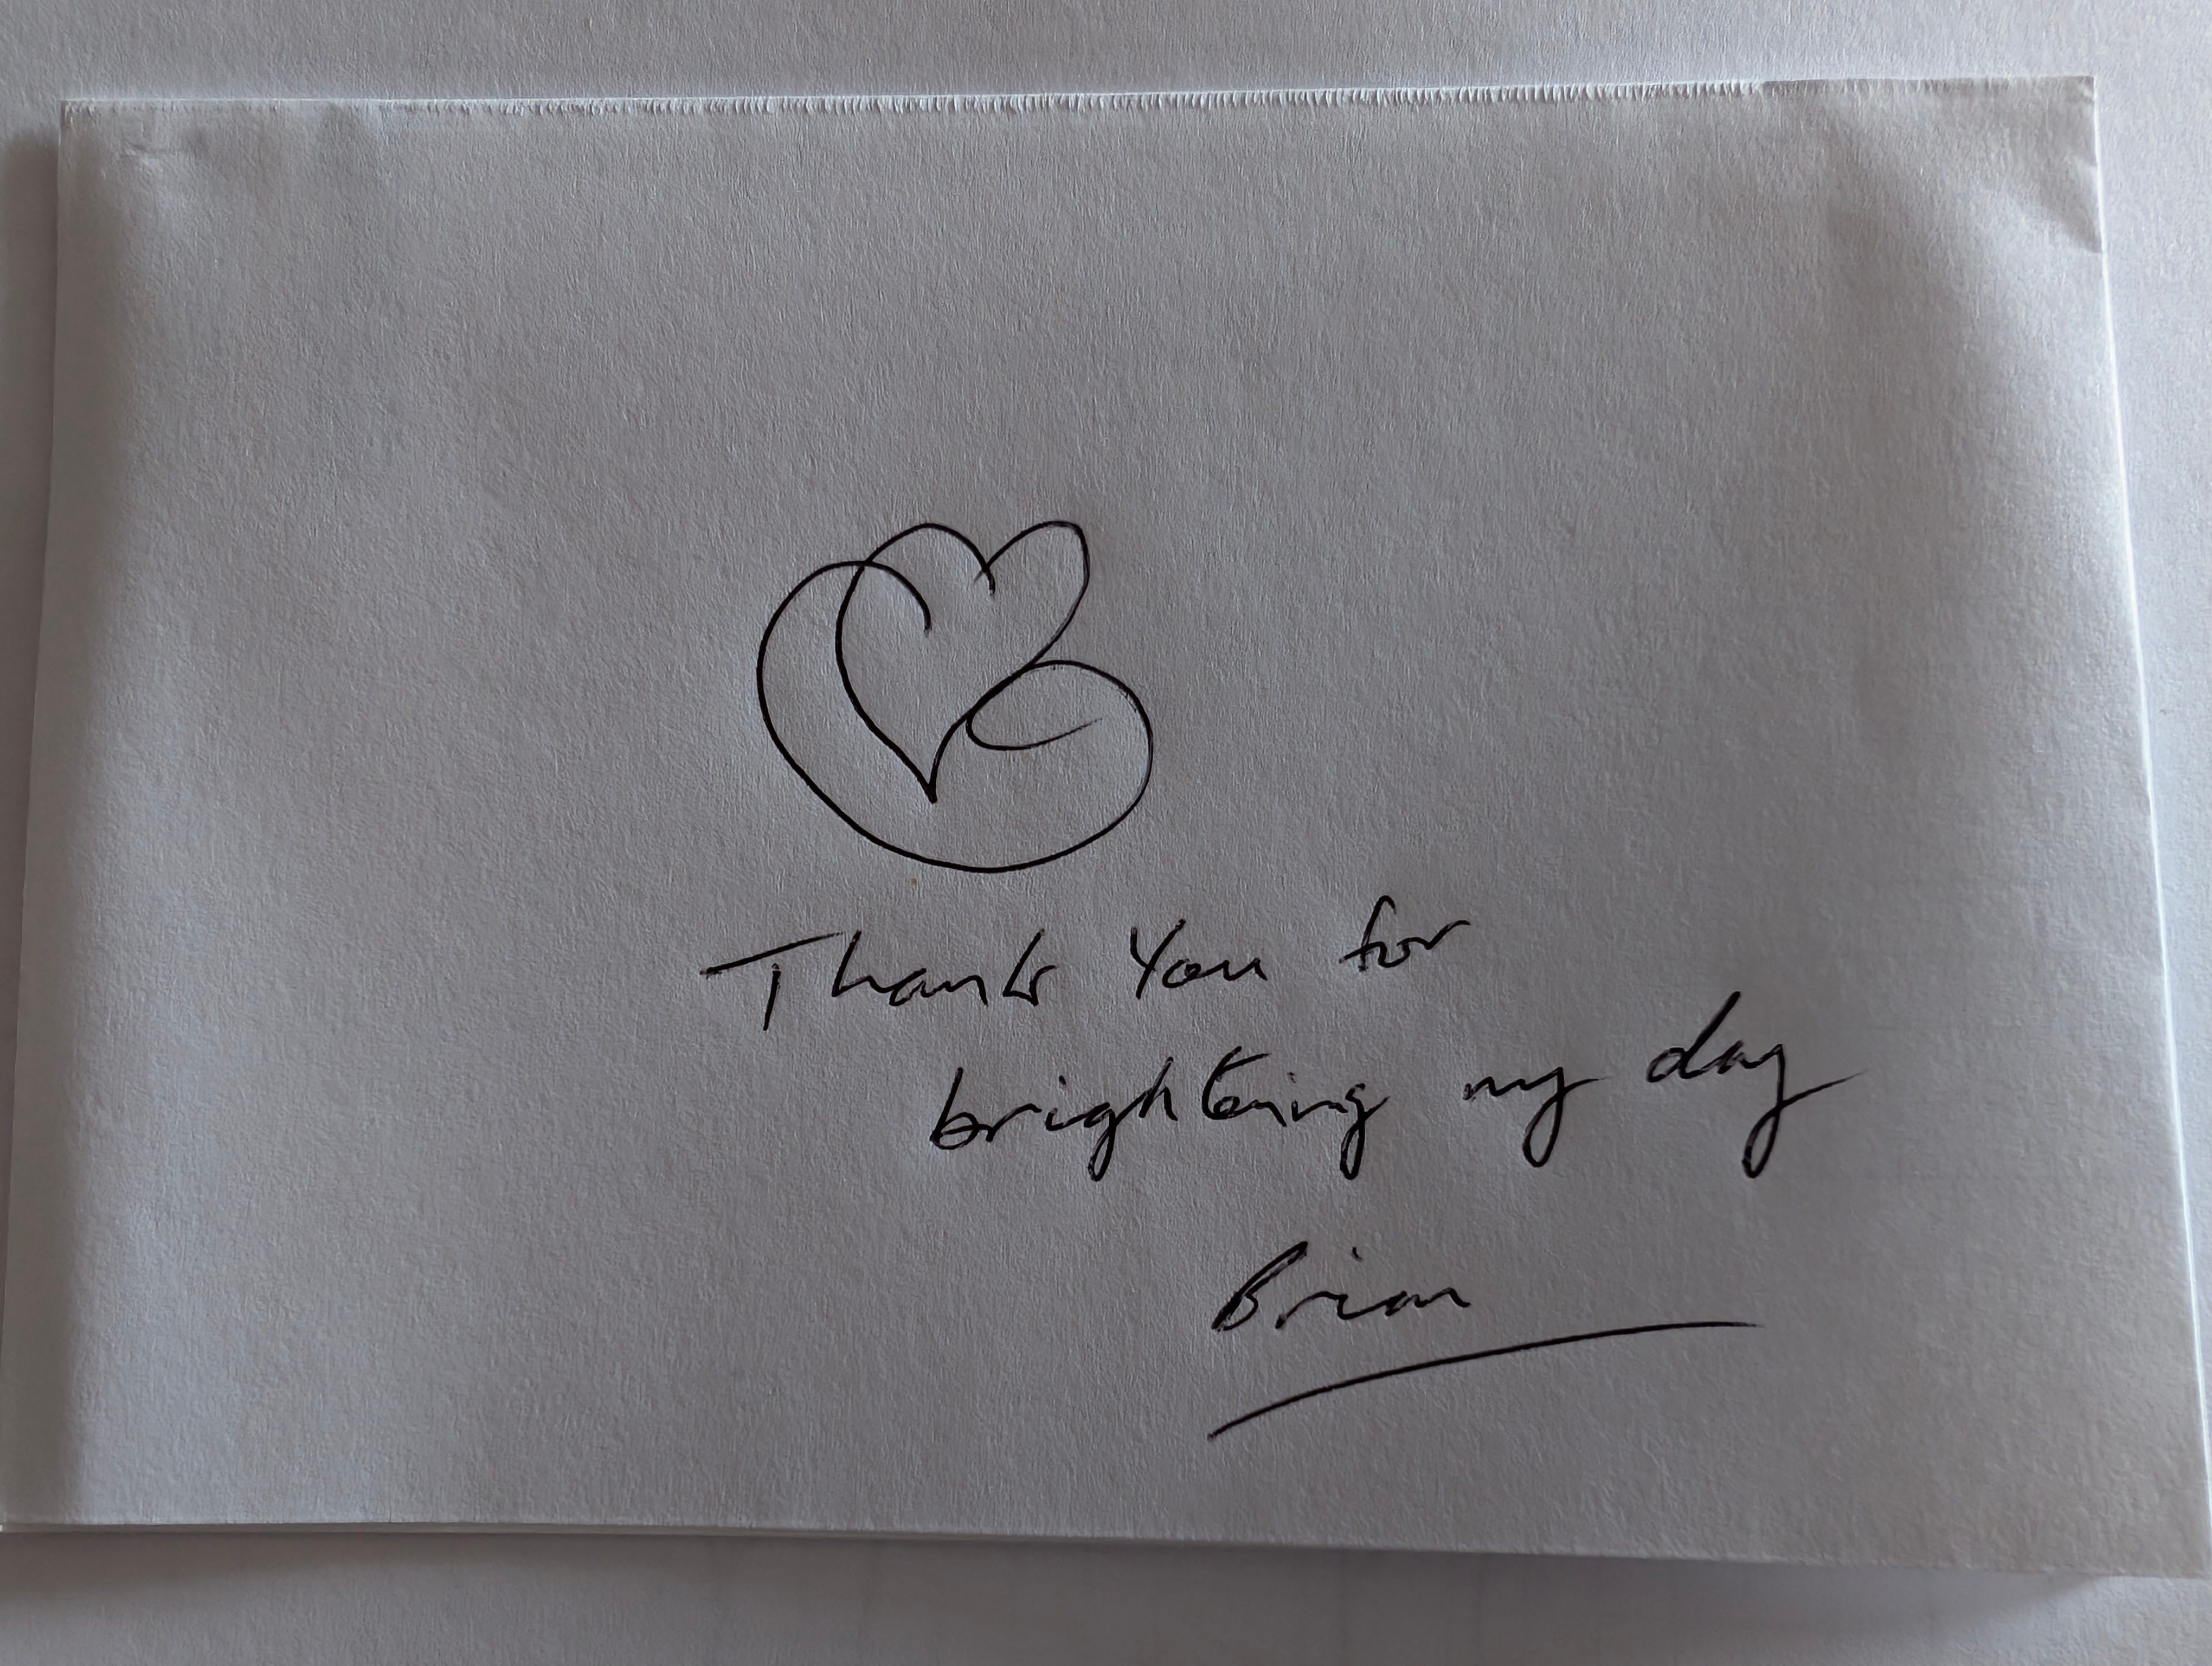 Thank You for
brightening my day
Brian